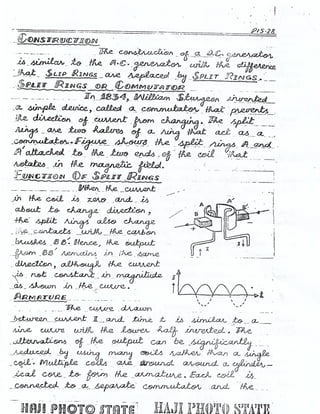 P15-28
CONSTRUCTION
The construction of a D.C. generator
is similar to the A.C. generator with the difference
that SLIP RINGS are replaced by SPLIT RINGS.
SPLIT RINGS OR COMMUTATOR
In 1834, William Sturgeon invented
a simple device, called a commutator that prevents
the direction of current from changing. The split
rings are two halves of a ring that act as a
commutator. Figure shows the split rings A and
A' attached to the two ends of the coil that
rotates in the magnetic field.
FUNCTION OF SPLIT RINGS
When the current
in the coil is zero and is
about to change direction,
the split rings also change
the contacts with the carbon
brushes BB'. Hence, the output
from BB' remains in the same
direction, although the current
is not constant in magnitude
as shown in the curve.
ARMATURE
The curve drawn
between current I and time t is similar to a
sine curve with the lower half inverted. The
alternations of the output can be significantly
reduced by using many coils rather than a single
coil. Multiple cells are wound around a cylindr-
ical core to form the armature. Each coil is
connected to a separate commutator and the
HAJI PHOTO STATE HAJI PHOTO STATE